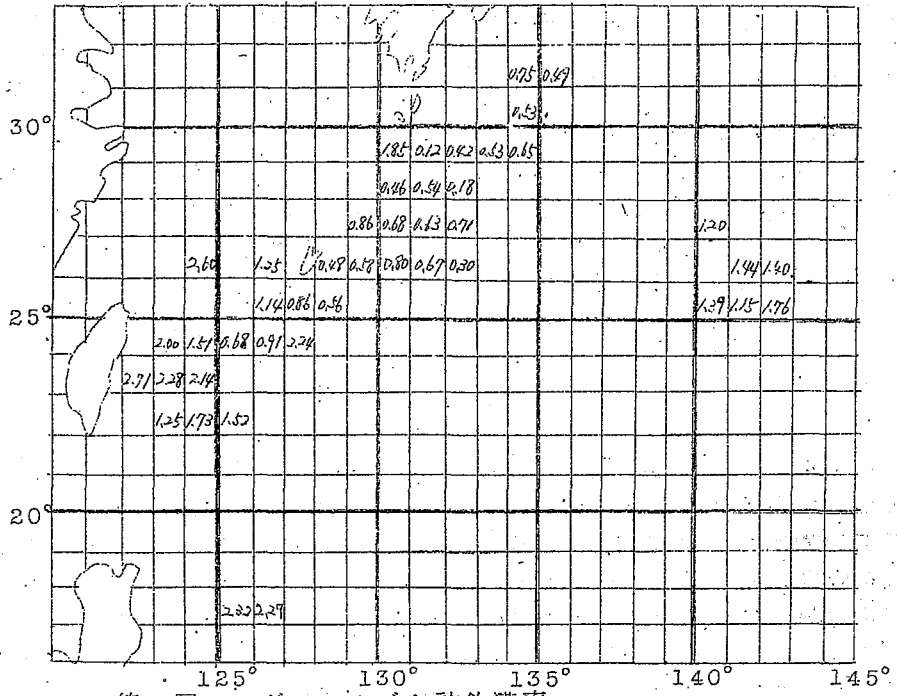 0.75 0.49
0.53
30°
1.85 0.12 0.42 0.53 0.65
0.46 0.54 0.18
0.86 0.68 0.63 0.71 1.20
2.60 1.25 0.48 0.58 0.80 0.67 0.30 1.44 1.40
1.14 0.86 0.56 1.39 1.15 1.76
25°
2.00 1.51 0.68 0.91 2.24
2.71 2.28 2.14
1.25 1.73 1.52
20°
2.32 2.27
125° 130° 135° 140° 145°